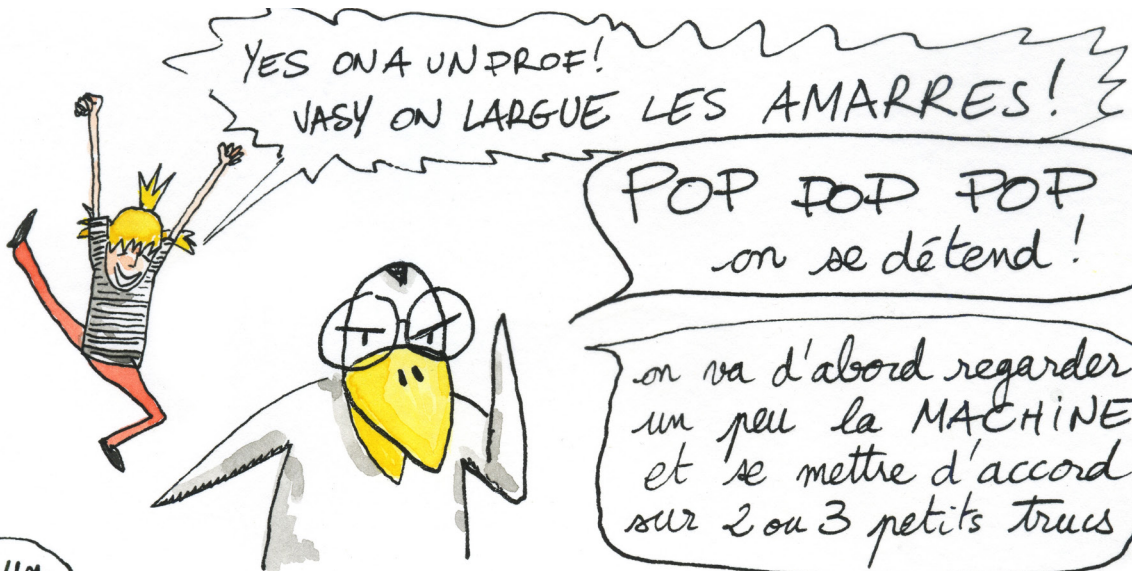 YES ON A UN PROF!
VASY ON LARGUE LES AMARRES!
POP POP POP
on se détend!
on va d'abord regarder
un peu la MACHINE
et se mettre d'accord
sur 2 ou 3 petits trucs